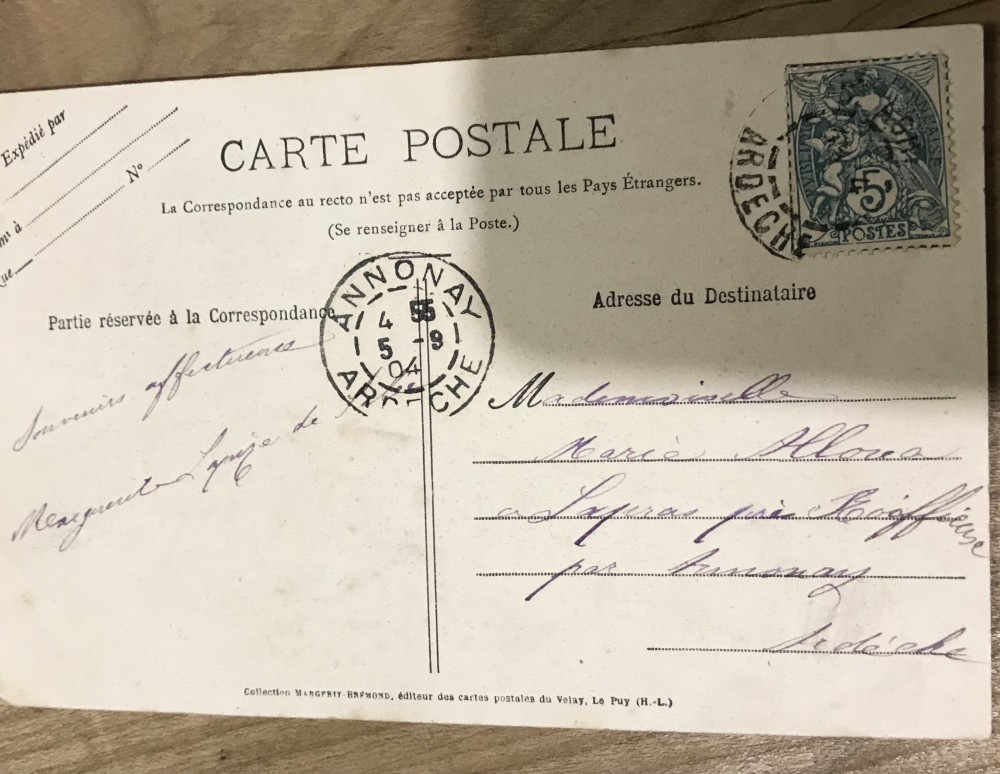 Expédié par
N°
à
CARTE POSTALE
La Correspondance au recto n'est pas acceptée par tous les Pays Étrangers.
(Se renseigner à la Poste.)
ARDECHE
5
POSTES
Partie réservée à la Correspondance
Adresse du Destinataire
ANNONAY
4 55
5 -9
04
ARDECHE
Souvenirs affectueux
Marguerite de
Mademoiselle
Marie
a Lapras près
par Annonay
Ardèche
Collection MARGERIT-BREMOND, éditeur des cartes postales du Velay, Le Puy (H.-L.)